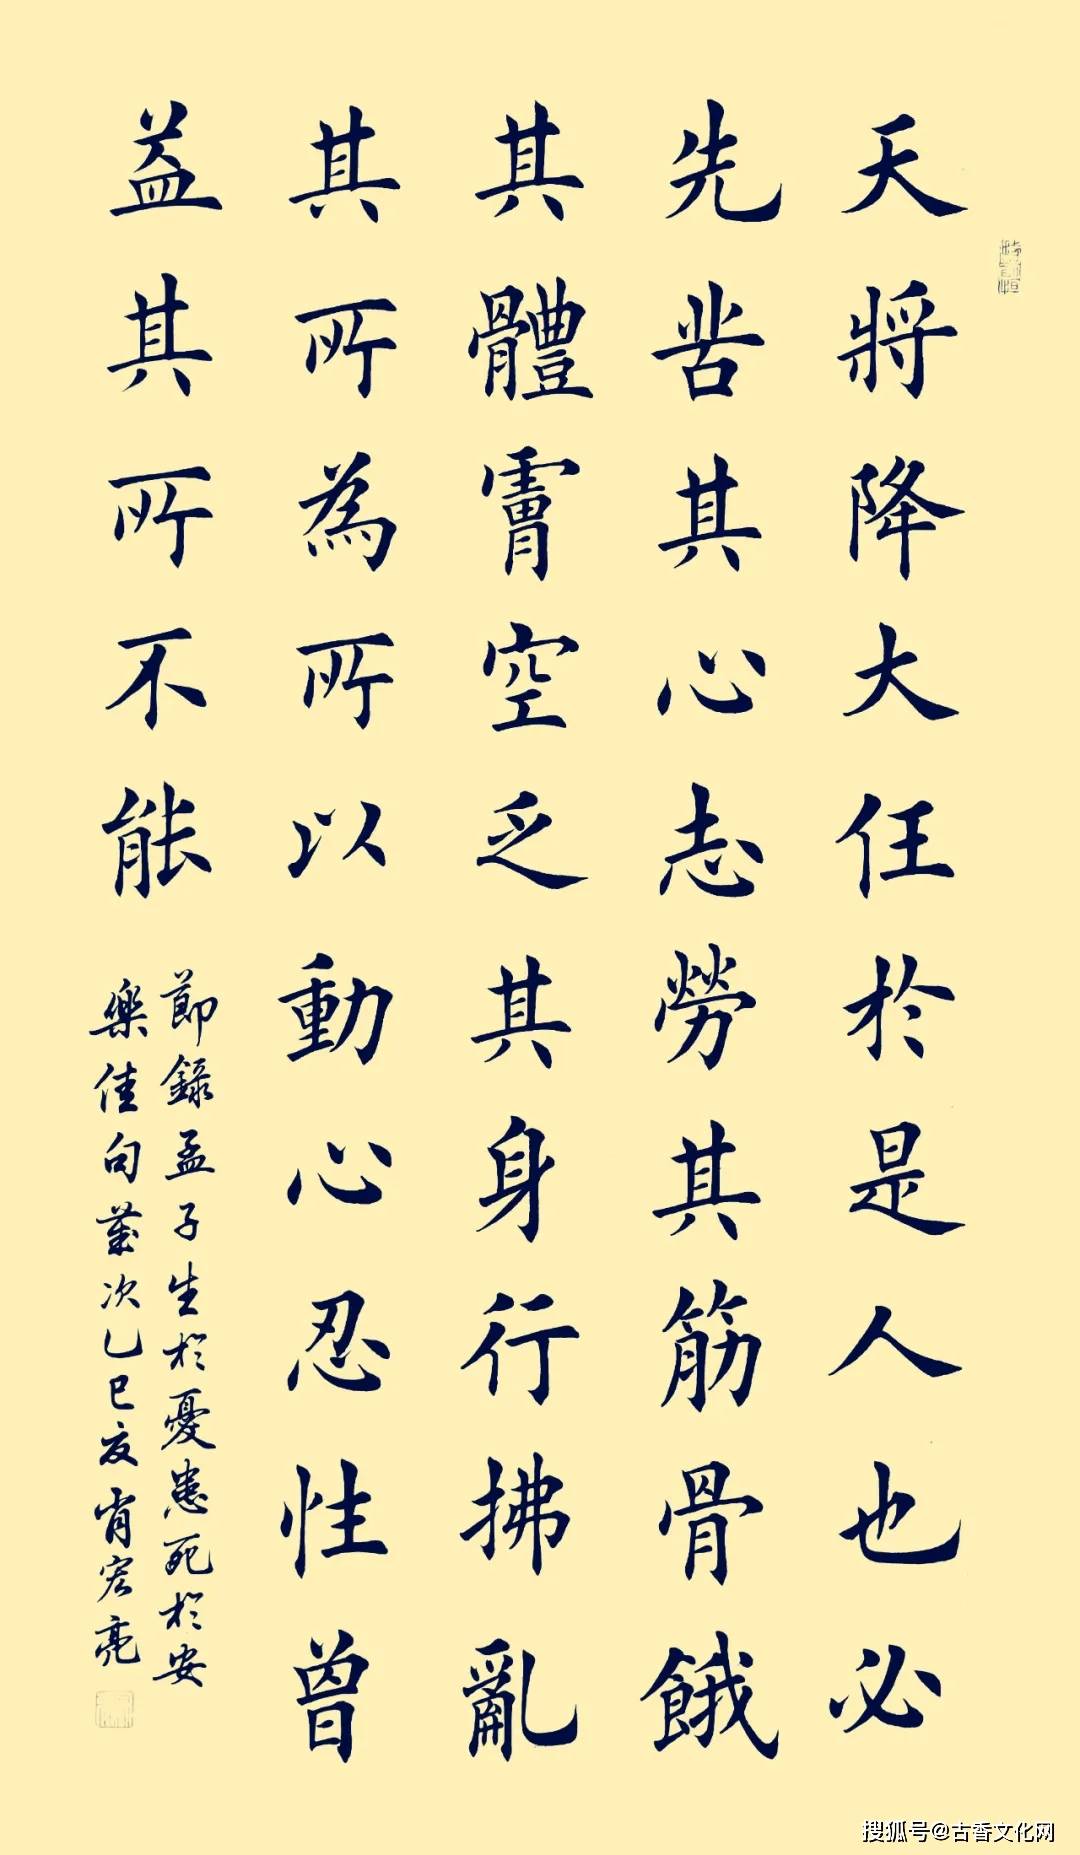 天將降大任於是人也必
先苦其心志勞其筋骨餓
其體膚空乏其身行拂亂
其所為所以動心忍性曾
益其所不能
節錄孟子生於憂患死於安
樂佳句歲次乙巳夏肖宏亮
搜狐号@古香文化网